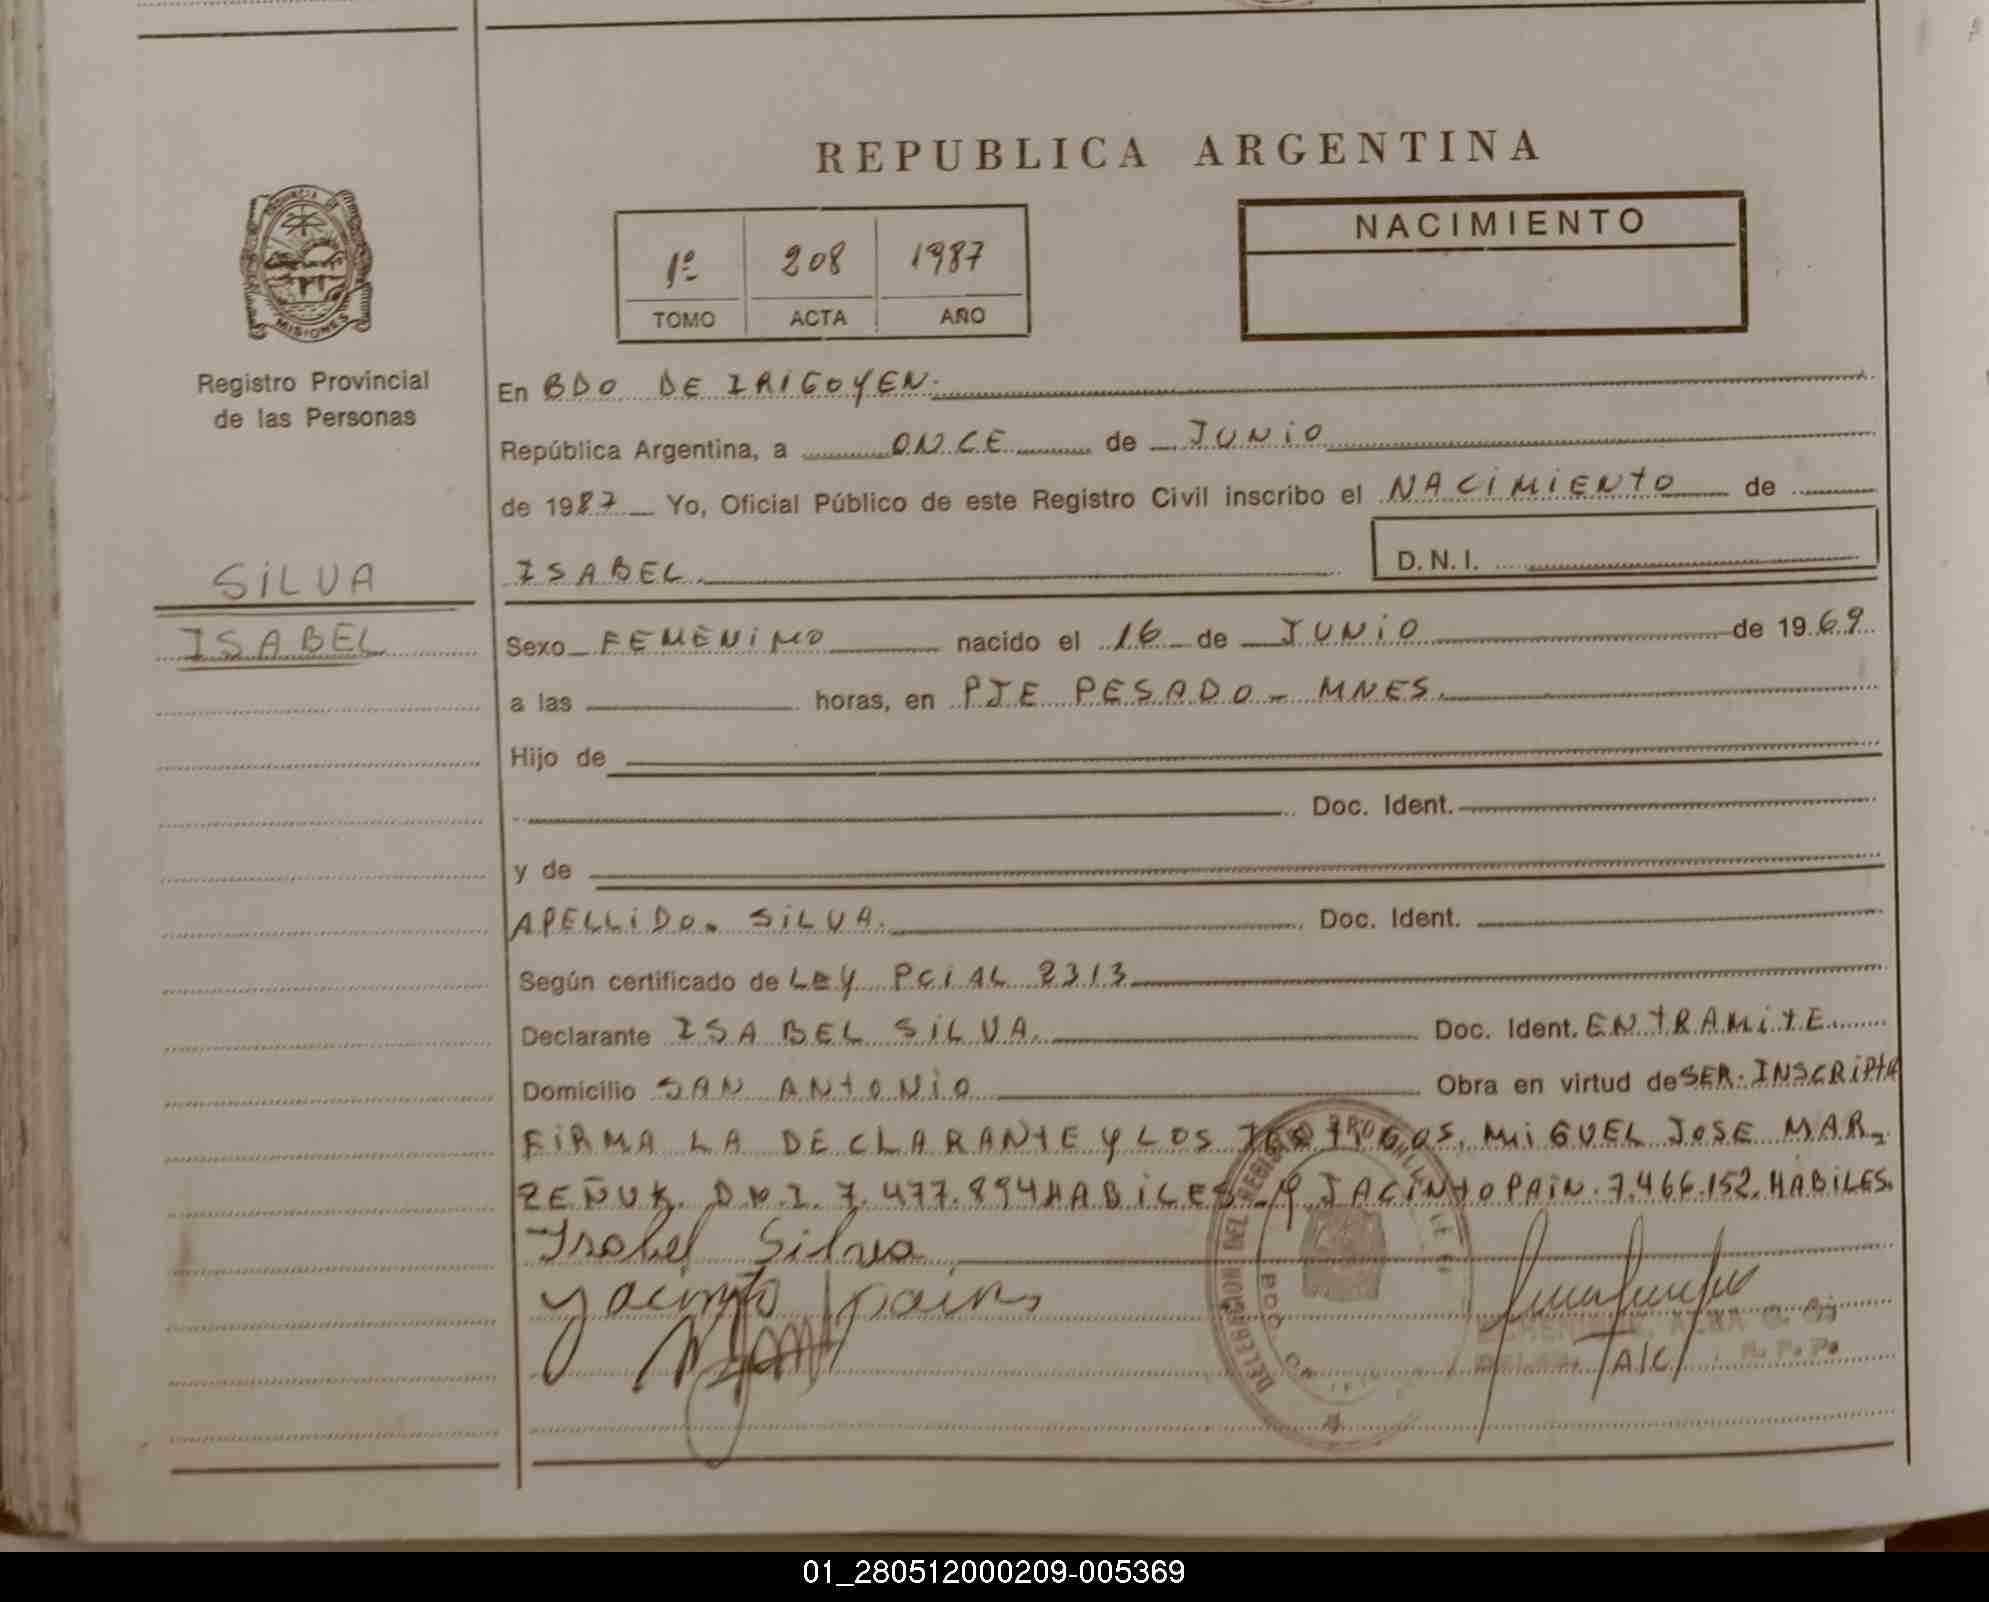 REPUBLICA ARGENTINA
PROVINCIA
MISIONES
Registro Provincial
de las Personas
1º 208 1987
TOMO ACTA AÑO
NACIMIENTO
En BDO DE IRIGOYEN.
República Argentina, a ONCE de JUNIO
de 1987 Yo, Oficial Público de este Registro Civil inscribo el NACIMIENTO de
ISABEL. D.N.I.
SILVA
ISABEL
Sexo FEMENINO nacido el 16 de JUNIO de 1969
a las horas, en PJE PESADO - MNES.
Hijo de
Doc. Ident.
y de
APELLIDO. SILVA. Doc. Ident.
Según certificado de LEY PCIAL 2313
Declarante ISABEL SILVA. Doc. Ident. EN TRAMITE
Domicilio SAN ANTONIO Obra en virtud de SER. INSCRIPTA
FIRMA LA DECLARANTE Y LOS MIGUEL JOSE MAR-
ZEÑUK. D.N.I. 7.477.894 HABILES Y JACINTO PAIN. 7.466.152. HABILES.
Isabel Silva
Yacinto pain
DELEGACION DEL
BDO.